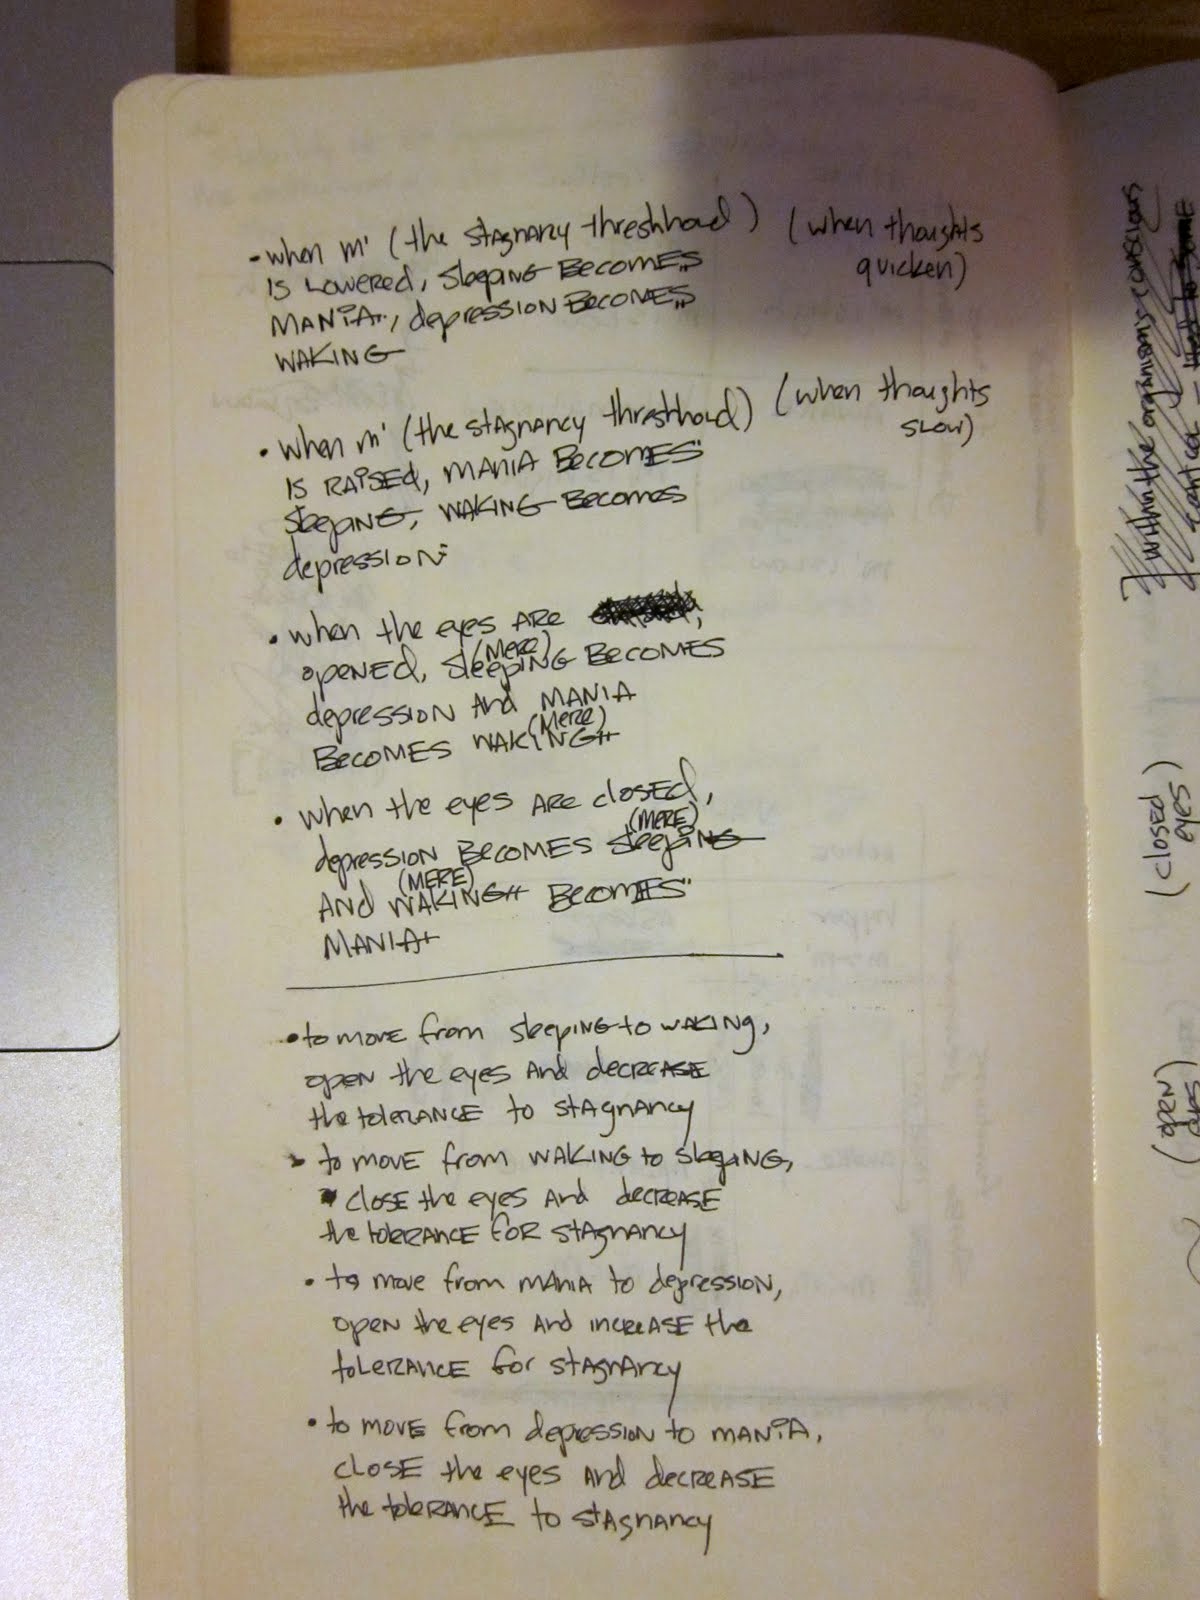 • when m' (the stagnancy threshhold) (when thoughts
quicken)
is lowered, sleeping becomes
mania, depression becomes
waking
• when m' (the stagnancy threshhold) (when thoughts
slow)
is raised, mania becomes
sleeping, waking becomes
depression
• when the eyes are
opened, (mere) sleeping becomes
depression and mania
becomes (mere) waking
• when the eyes are closed,
depression becomes (mere) sleeping
and (mere) waking becomes
mania
• to move from sleeping to waking,
open the eyes and decrease
the tolerance to stagnancy
• to move from waking to sleeping,
close the eyes and decrease
the tolerance for stagnancy
• to move from mania to depression,
open the eyes and increase the
tolerance for stagnancy
• to move from depression to mania,
close the eyes and decrease
the tolerance to stagnancy
within the organisms conscious
(closed
eyes)
(open
eyes)